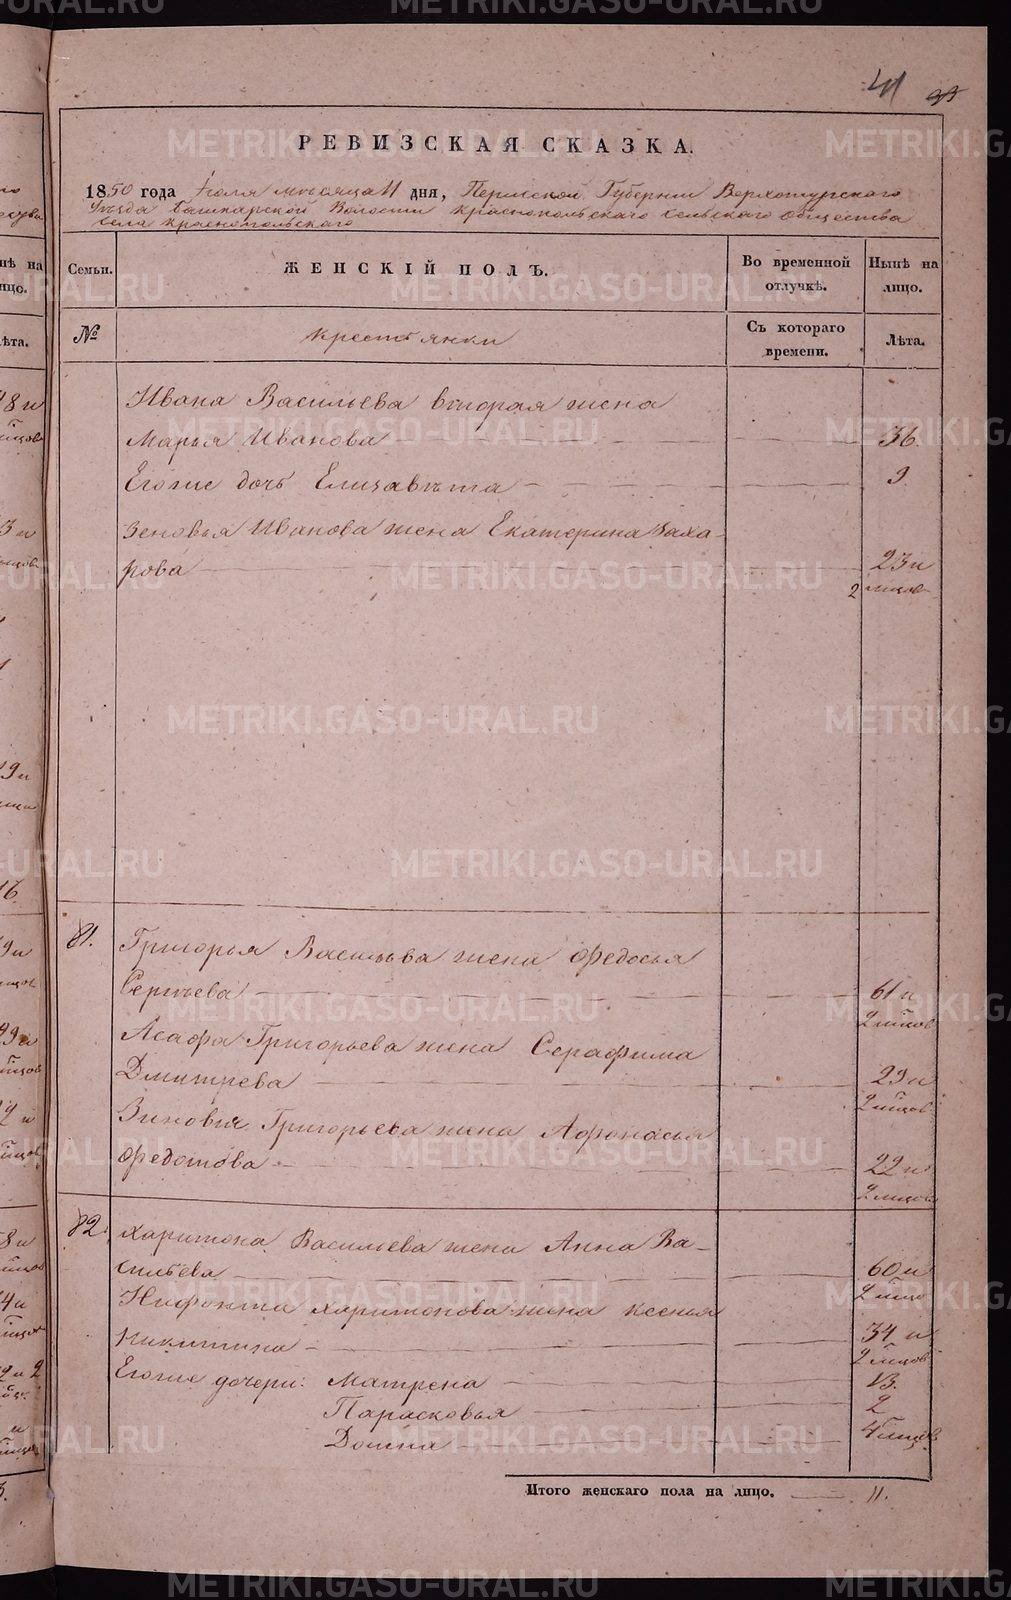 41
РЕВИЗСКАЯ СКАЗКА.
1850 года Іюля месяца 11 дня, Пермской Губернии Верхотурскаго
Уезда Башкарской Волости Краснопольскаго Сельскаго Общества
села Краснопольскаго
Семьи. ЖЕНСКІЙ ПОЛЪ. Во временной отлучкѣ. Нынѣ на лицо.
№ Крестьянки Съ котораго времени. Лѣта.
Ивана Васильева вторая жена
Марья Иванова 36.
Егоже дочь Елизавѣта 9
Зеновья Иванова жена Екатерина Заха-
рова 23 и
2 мѣсцов
81. Григорья Васильва жена Федосья
Сергѣева 61 и
2 мѣсцов
Асафа Григорьева жена Серафима
Дмитрева 29 и
2 мѣсцов
Зиновия Григорьева жена Афонасья
Федотова 22 и
2 мѣсцов
82. Харитона Васильева жена Анна Ва-
сильева 60 и
2 мѣсцо
Нифонта Харитонова жена Ксенья
Никитина 34 и
2 мѣсцов
Егоже дочери: Матрена 13.
Парасковья 2
Домна 4 мѣсцов
Итого женскаго пола на лицо. 11.
METRIKI.GASO-URAL.RU